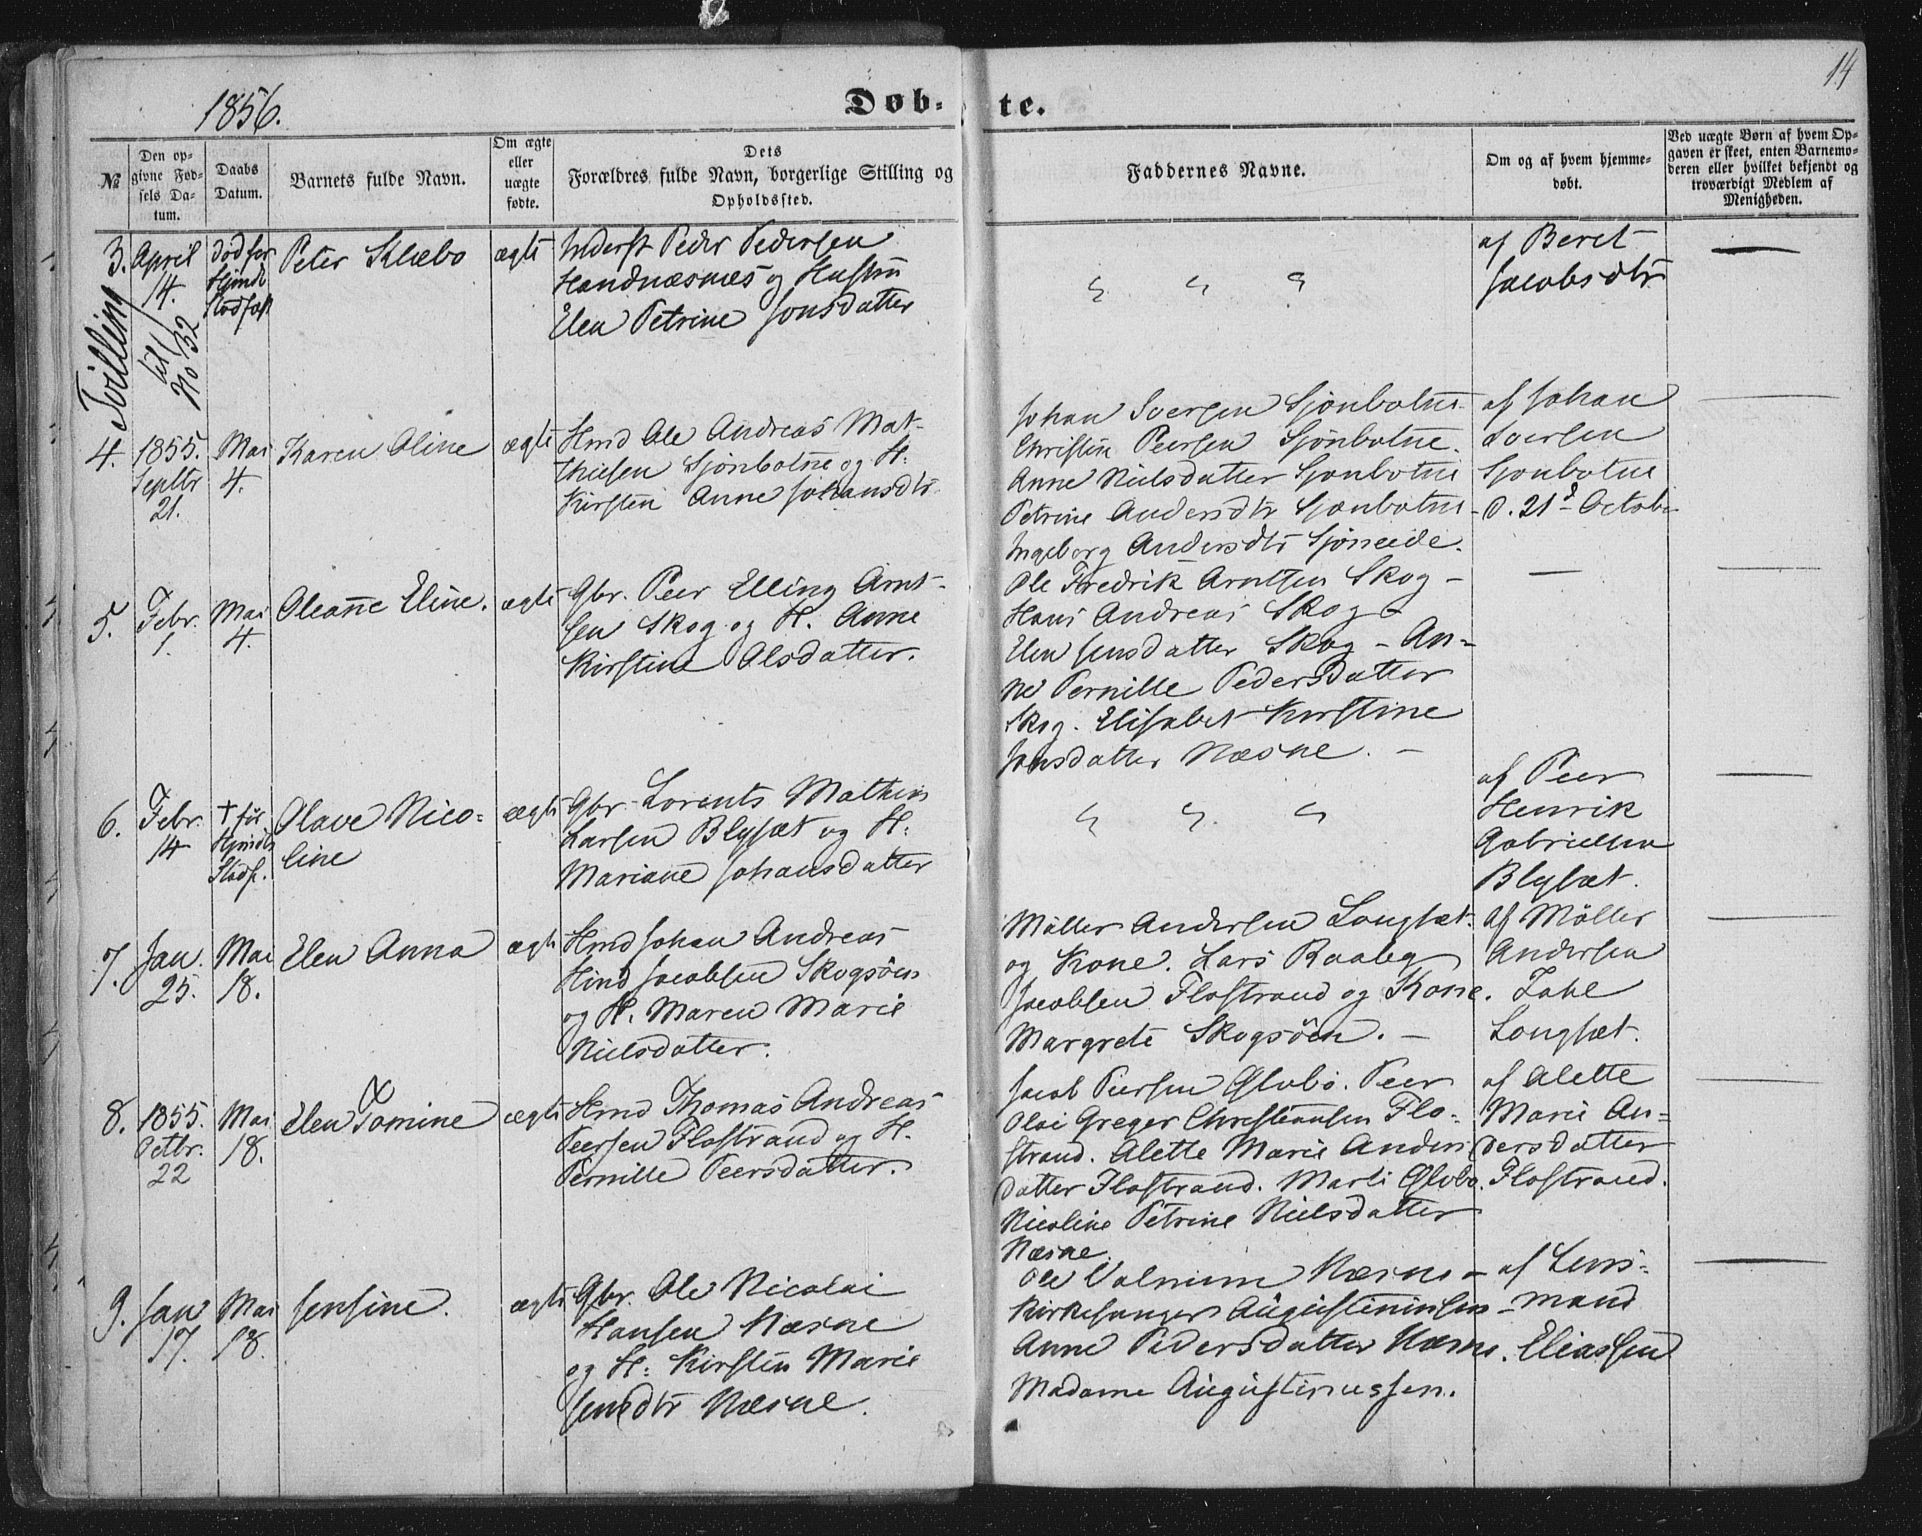 14
1856.
Døb-
te.
№
Den opgivne Fødsels Datum.
Daabs Datum.
Barnets fulde Navn.
Om ægte eller uægte fødte.
Dets
Forældres fulde Navn, borgerlige Stilling og
Opholdssted.
Faddernes Navne.
Om og af hvem hjemmedøbt.
Ved uægte Børn af hvem Opgaven er skeet, enten Barnemoderen eller hvilket bekjendt og troværdigt Medlem af Menigheden.
3.
April
14.
Tvilling
til
No 32
død før
Hjmdb
Stadfæst
Peter Klæbo
ægte
Inderst Peder Pedersen
Handnæsnæs og Hustru
Elen Petrine Jonsdatter
" " "
af Beret
Jacobsdtr
4.
1855.
Septbr
21.
Mai
4.
Karen Oline
ægte
Hmd Ole Andreas Mat-
thisen Sjønbotne og H.
Kirsten Anne Johansdtr
Johan Iversen Sjønbotne
Christen Peersen Sjønbotne.
Anne Nielsdatter Sjønbotne
Petrine Andersdtr Sjønbotne
Ingeborg Andersdtr Sjøneide.
af Johan
Iversen
Sjønbotne
d. 21d October
5.
Febr.
1.
Mai
4.
Oleane Eline.
ægte
Gbr. Peer Elling Arnt-
sen Skog og H. Anne
Kirstine Olsdatter.
Ole Fredrik Arntsen Skog -
Hans Andreas Skog -
Elen Jensdatter Skog - An-
ne Pernille Pedersdatter
Skog. Elisabet Kirstine
Jonsdatter Næsne. -
6.
Febr.
14
† før
Hjmdb
Stadf.
Olave Nico-
line
ægte
Gbr. Lorents Mathias
Larsen Blysæt og H.
Mariane Johansdatter
" " "
af Peer
Henrik
Gabrielsen
Blysæt.
7.
Jan.
25.
Mai
18.
Elen Anna
ægte
Hmd Johan Andreas
Hind Jacobsen Skogsøen
og H. Maren Marie
Nielsdatter.
Møller Andersen Langsæt
og Kone. Lars Raaby
Jacobsen Flostrand og Kone.
Margrete Skogsøen. -
af Møller
Andersen
Zahl
Langsæt.
8.
1855.
Octbr.
22
Mai
18.
Elen Tomine
ægte
Hmd Thomas Andreas
Peersen Flostrand og H.
Pernille Peersdatter.
Jacob Peersen Glæbo. Peer
Olai Greger Christiansen Flo-
strand. Alette Marie Anders-
datter Flostrand. Marli Glæbo.
Nicoline Petrine Nielsdatter
Næsne.
af Alette
Marie An-
dersdatter
Flostrand.
9.
Jan
17.
Mai
18.
Jensine.
ægte
Gbr. Ole Nicolai
Hansen Næsne
og H. Kirsten Marie
Jensdtr Næsne.
Ole Næsne -
Kirkesanger Augustinussen -
Anne Pedersdatter Næsne.
Madame Augustinussen.
af Lens-
mand
Eliassen